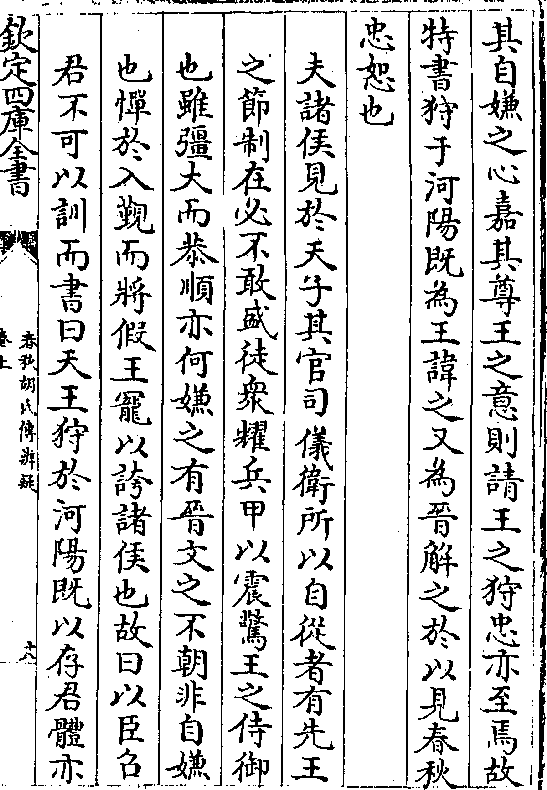 其自嫌之心嘉其尊王之意則請王之狩忠亦至焉故
特書狩于河陽既為王諱之又為晉解之於以見春秋
忠恕也
夫諸侯見於天子其官司儀衛所以自從者有先王
之節制在必不敢盛徒衆耀兵甲以震驚王之侍御
也雖彊大而恭順亦何嫌之有晉文之不朝非自嫌
也憚於入覲而將假王寵以誇諸侯也故曰以臣召
君不可以訓而書曰天王狩於河陽既以存君體亦
欽定四庫全書
春秋胡氏傳辨疑
卷上
十八